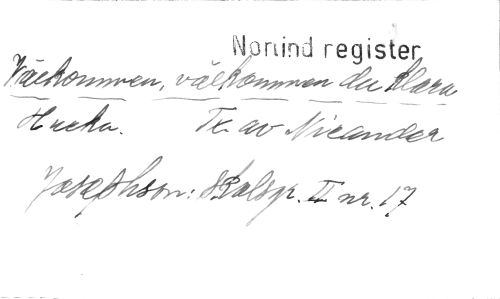 Nonind register
Välkommen, välkommen du klara
Tx. av Nicander
Josephson: Skalsgr. II nr. 17